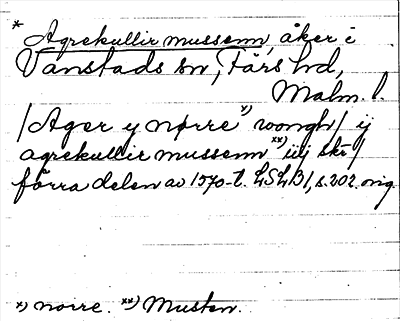 * Agrekullir mussenn, åker i
Vanstads sn, Färs hd,
Malm. l.
/Ager y nørre x) wongh/ ij
agrekullir mussenn xx) iiij skr/
förra delen av 1570-t. LSLB1, s. 202 orig.
x) norre. xx) Musten.